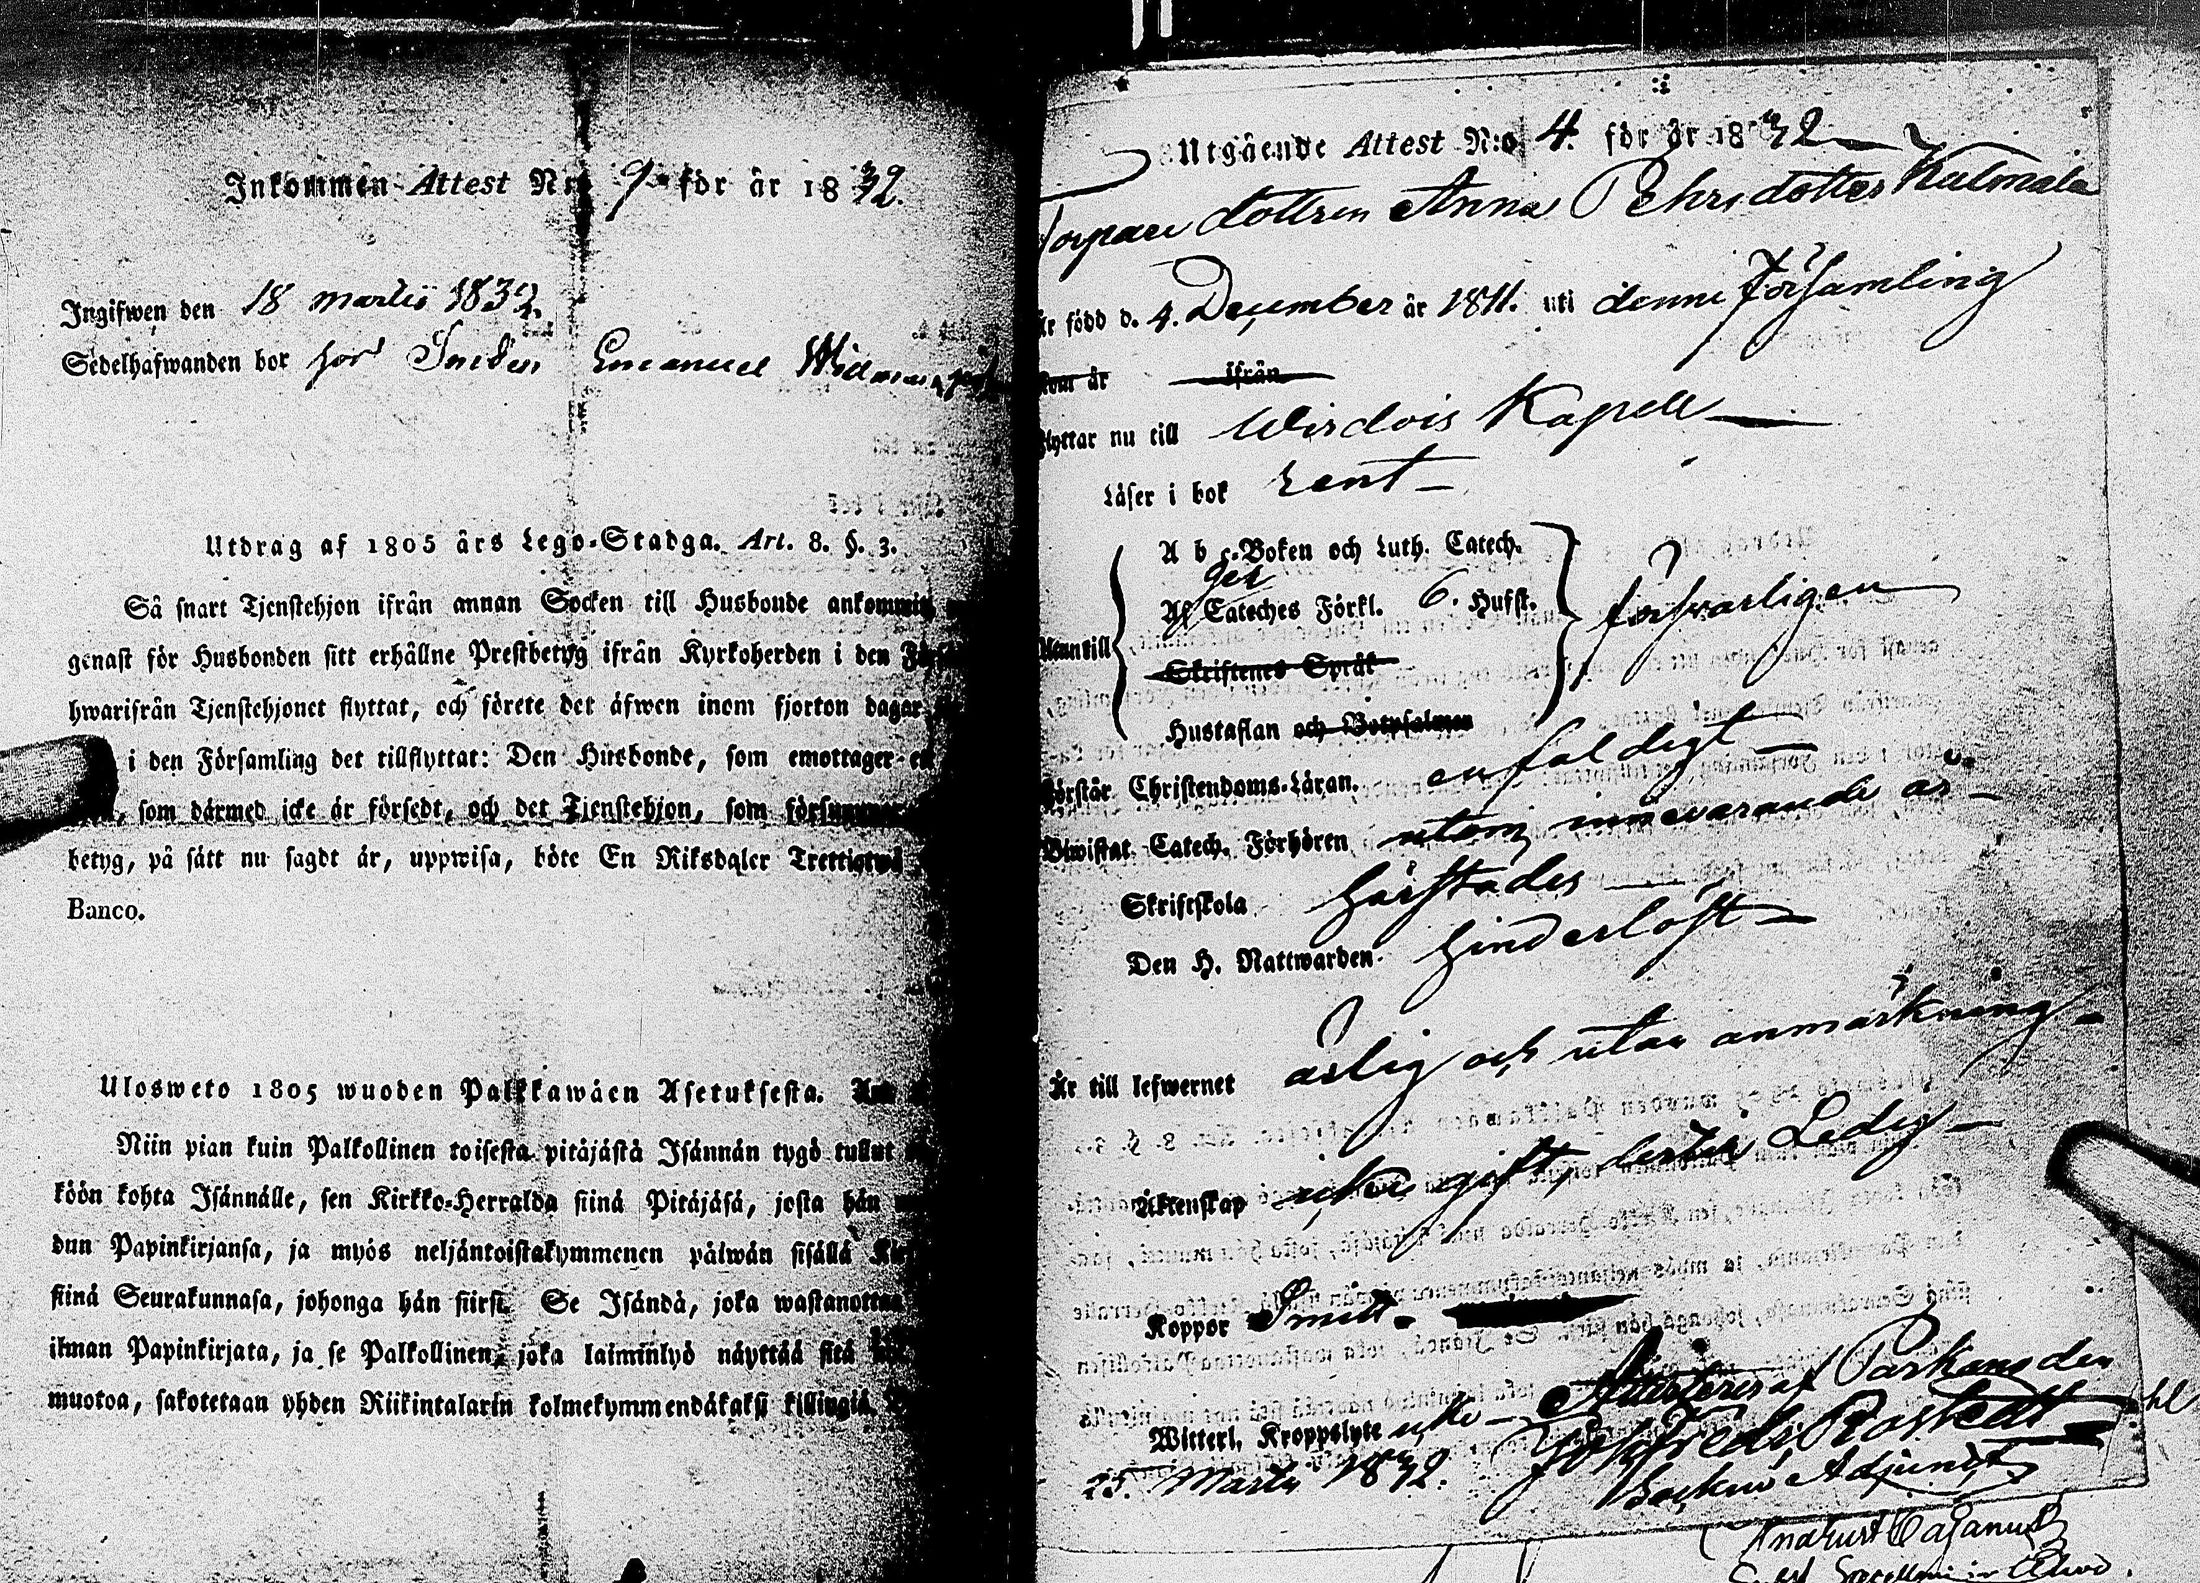 Inkommen Attest N:o 9 för år 1832.
Ingifwen den 18 martii 1832.
Sedelhafwanden bor hos Emanuel
Utdrag af 1805 års Lego-Stadga. Art. 8. §. 3.
Så snart Tjenstehjon ifrån annan Socken till Husbonde ankommit
genast för Husbonden sitt erhållne Prestbetyg ifrån Kyrkoherden i den
hwarifrån Tjenstehjonet flyttat, och förete det äfwen inom fjorton dagar
i den Församling det tillflyttat: Den Husbonde, som emottager
, som därmed icke är försedt, och det Tjenstehjon, som försummar
betyg, på sätt nu sagdt är, uppwisa, böte En Riksdaler Trettiotwå
Banco.
Ulosweto 1805 wuoden Palkkawäen Asetuksesta.
Niin pian kuin Palkollinen toisesta pitäjästä Isännän tygö tullut
köön kohta Isännälle, sen Kirkko-Herralda siinä Pitäjäsä, josta hän
dun Papinkirjansa, ja myös neljäntoistakymmenen päiwän sisällä
siinä Seurakunnasa, johonga hän siirsi. Se Isändä, joka wastanottaa
ilman Papinkirjata, ja se Palkollinen, joka laiminlyö näyttää sitä
muotoa, sakotetaan yhden Riikintalarin kolmekymmendäkaksi killingiä
Utgående Attest N:o 4. för år 1832
Torpare dottren Anna Pehrsdotter Kulmala
Är född d. 4. December år 1811. uti denne Församling
kom år ifrån
flyttar nu till Wirdois Kapell
Läser i bok rent
A b c-Boken och Luth. Catech.
ger
Af Cateches Förkl. 6. Husst. försvarligen
Utantill
Skriftenes Språk
Hustaflan och Botpsalmen
Förstår Christendoms-Läran. enfaldigt
Biwistat Catech. Förhören utom innevarande år
Skriftskola härstädes
Den H. Nattwarden hinderlöst
Är till lefwernet ärlig och utan anmärkning
Äktenskap icke gift, Ledig
Koppor
Witterl. Kroppslyte icke Parkano den
25. Martii 1832. Rostedt
Sockne Adjunct
Cajanus